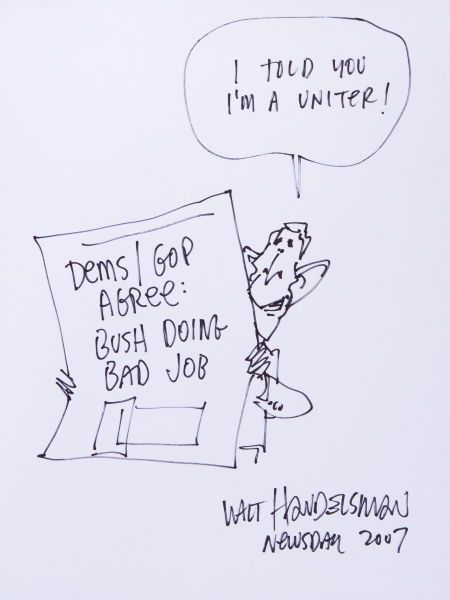 I TOLD YOU
I'M A UNITER!
DEMS/GOP
AGREE:
BUSH DOING
BAD JOB
WALT HANDELSMAN
NEWSDAY 2007